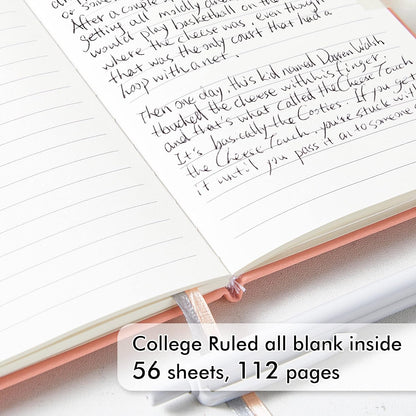 After a couple
getting all moldy and
would play basketball on the
where the cheese was, even though
that was the only court that had a
hoop with a net.
Then one day, this kid named Darren Walsh
touched the cheese with his finger,
and that's what called the Cheese Touch
It's basically the Costies. If you get
the Cheese Touch, you're stuck with
it until you pass it on to someone
College Ruled all blank inside
56 sheets, 112 pages